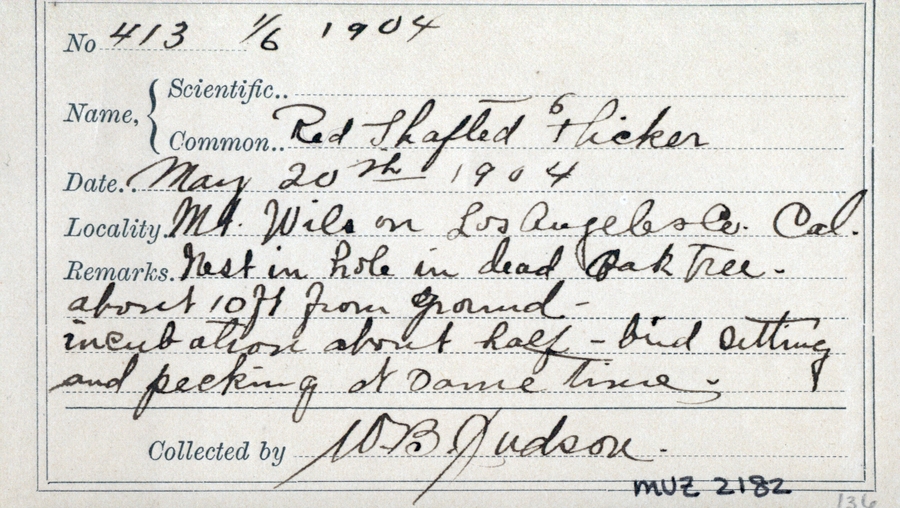 No 413 1/6 1904
Name, { Scientific..
Common.. Red Shafted Flicker
Date.. May 20th 1904
Locality. Mt. Wilson Los Angeles Co. Cal.
Remarks. Nest in hole in dead Oak Tree -
about 10 ft from ground -
incubation about half - bird setting
and pecking at same time -
Collected by W. B. Judson.
MVZ 2182
136